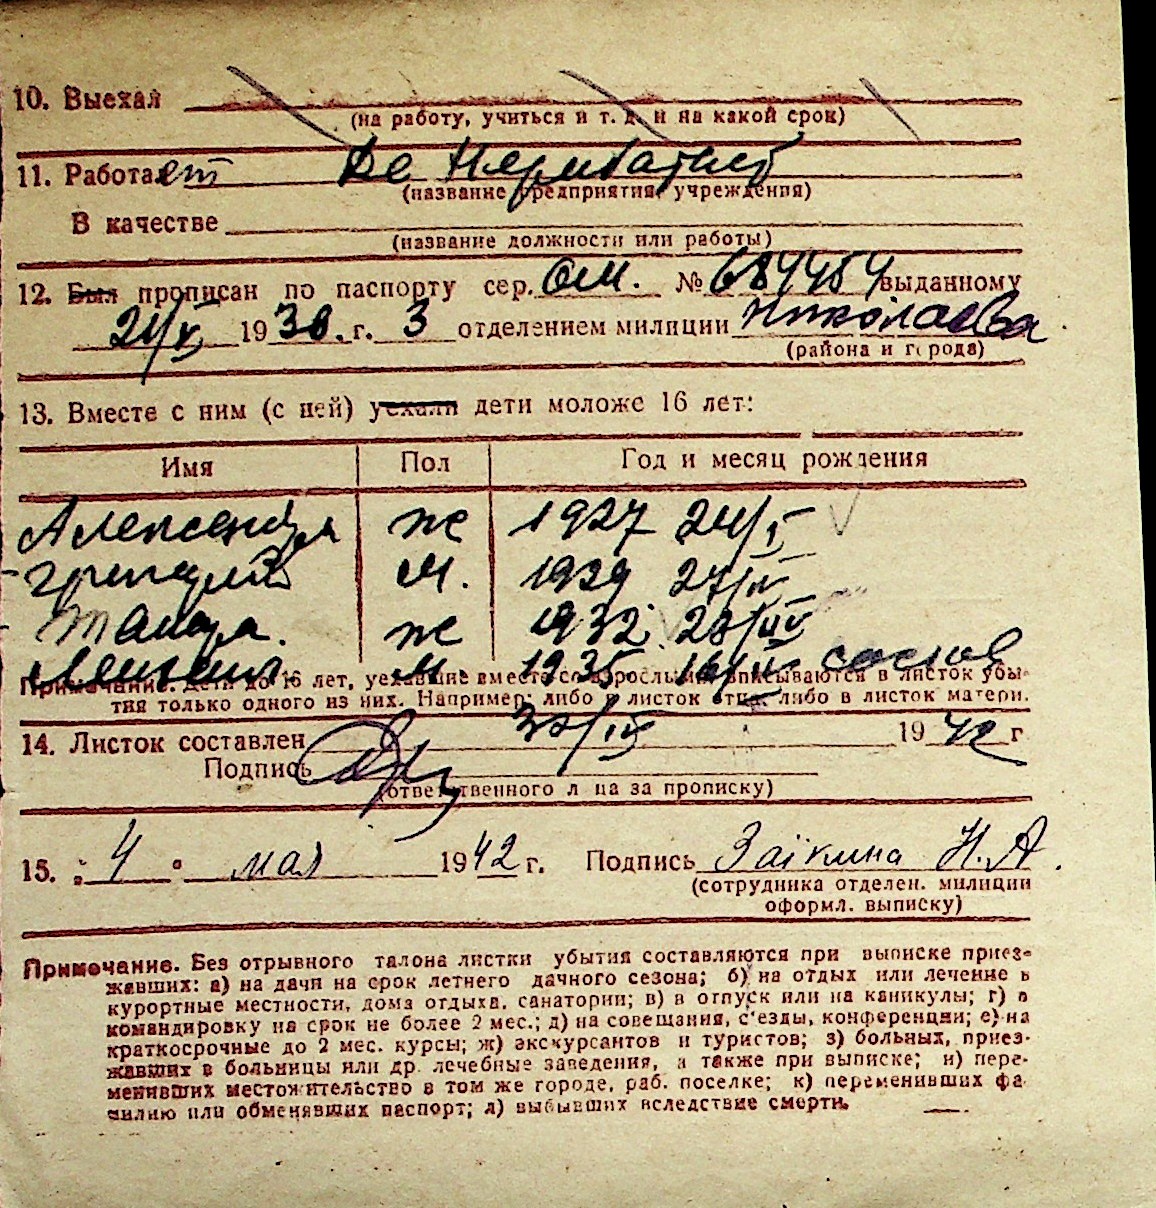 10. Выехал
(на работу, учиться и т. д. и на какой срок)
11. Работает Не
(название предприятия, учреждения)
В качестве
(название должности или работы)
12. Был прописан по паспорту сер. ОМ. № 684454 выданному
24/V 1938. г. 3 отделением милиции Николаева
(района и города)
13. Вместе с ним (с ней) уехали дети моложе 16 лет:
Имя Пол Год и месяц рождения
Александра ж 1927 24/I
Григорий м. 1929 27/IV
Тамара. ж 1932 23/III
м 1935 16/II
Примечание. Дети до 16 лет, уехавшие вместе со взрослыми вписываются в листок убы-
тия только одного из них. Например: либо в листок отца, либо в листок матери.
14. Листок составлен 30/IV 1942 г
Подпись
(ответственного лица за прописку)
15. „4" мая 1942 г. Подпись Заікина Н. А.
(сотрудника отделен. милиции
оформл. выписку)
Примечание. Без отрывного талона листки убытия составляются при выписке приез-
жавших: а) на дачи на срок летнего дачного сезона; б) на отдых или лечение в
курортные местности, дома отдыха, санатории; в) в отпуск или на каникулы; г) в
командировку на срок не более 2 мес.; д) на совещания, с'езды, конференции; е) на
краткосрочные до 2 мес. курсы; ж) экскурсантов и туристов; з) больных, приез-
жавших в больницы или др. лечебные заведения, а также при выписке; и) пере-
менивших местожительство в том же городе, раб. поселке; к) переменивших фа
милию или обменявших паспорт; л) выбывших вследствие смерти.